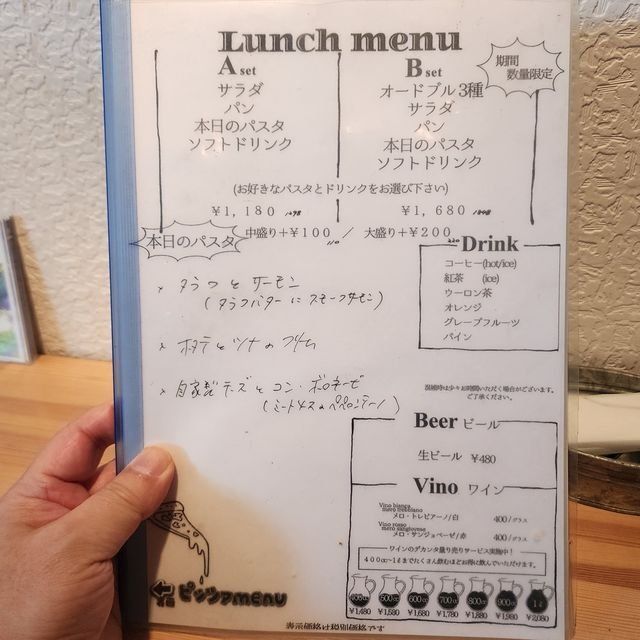 Lunch menu
A set
サラダ
パン
本日のパスタ
ソフトドリンク
B set
オードブル3種
サラダ
パン
本日のパスタ
ソフトドリンク
期間
数量限定
(お好きなパスタとドリンクをお選び下さい)
¥1,180
¥1,680
中盛り+¥100 / 大盛り+¥200
本日のパスタ
タラコとサーモン
ホタテとツナの
自家製チーズと
Drink
コーヒー(hot/ice)
紅茶 (ice)
ウーロン茶
オレンジ
グレープフルーツ
パイン
混雑時は少々お時間いただく場合がございます。
ご了承ください。
Beer ビール
生ビール ¥480
Vino ワイン
Vino bianca
mero trebbiano
メロ・トレビアーノ/白 400/グラス
Vino rosso
mero sangiovese
メロ・サンジョベーゼ/赤 400/グラス
ワインのデカンタ量り売りサービス実施中!
400cc~1ℓまでたくさん飲むほどお得に飲んでいただけます。
400cc 500cc 600cc 700cc 800cc 900cc 1ℓ
¥1,480 ¥1,580 ¥1,680 ¥1,780 ¥1,880 ¥1,980 ¥2,080
裏面 ピッツァmenu
表示価格は税別価格です